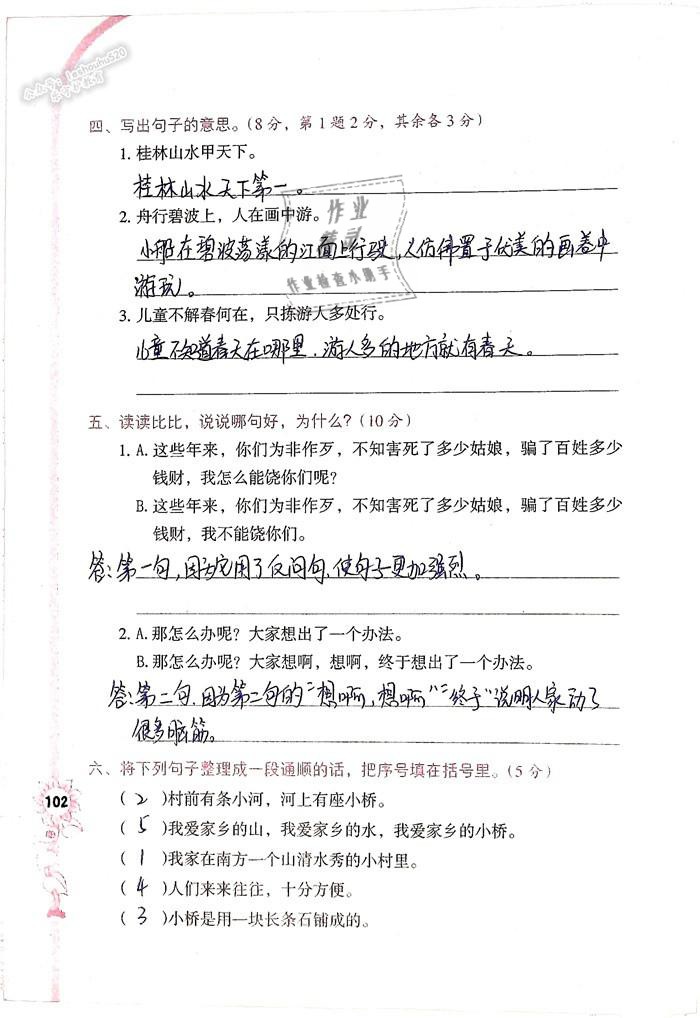 公众号:1eshouhu520
乐守护教育
四、写出句子的意思。(8分，第1题2分，其余各3分)
1. 桂林山水甲天下。
桂林山水天下第一。
2. 舟行碧波上，人在画中游。
小船在碧波荡漾的江面上行驶，人仿佛置于优美的画卷中
游玩。
3. 儿童不解春何在，只拣游人多处行。
儿童不知道春天在哪里，游人多的地方就有春天。
五、读读比比，说说哪句好，为什么？(10分)
1. A. 这些年来，你们为非作歹，不知害死了多少姑娘，骗了百姓多少
钱财，我怎么能饶你们呢？
B. 这些年来，你们为非作歹，不知害死了多少姑娘，骗了百姓多少
钱财，我不能饶你们。
答：第一句，因为它用了反问句，使句子更加强烈。
2. A. 那怎么办呢？大家想出了一个办法。
B. 那怎么办呢？大家想啊，想啊，终于想出了一个办法。
答：第二句，因为第二句的“想啊，想啊”“终于”说明人家动了
很多脑筋。
六、将下列句子整理成一段通顺的话，把序号填在括号里。(5分)
( 2 )村前有条小河，河上有座小桥。
( 5 )我爱家乡的山，我爱家乡的水，我爱家乡的小桥。
( 1 )我家在南方一个山清水秀的小村里。
( 4 )人们来来往往，十分方便。
( 3 )小桥是用一块长条石铺成的。
102
作业
精灵
作业检查小助手